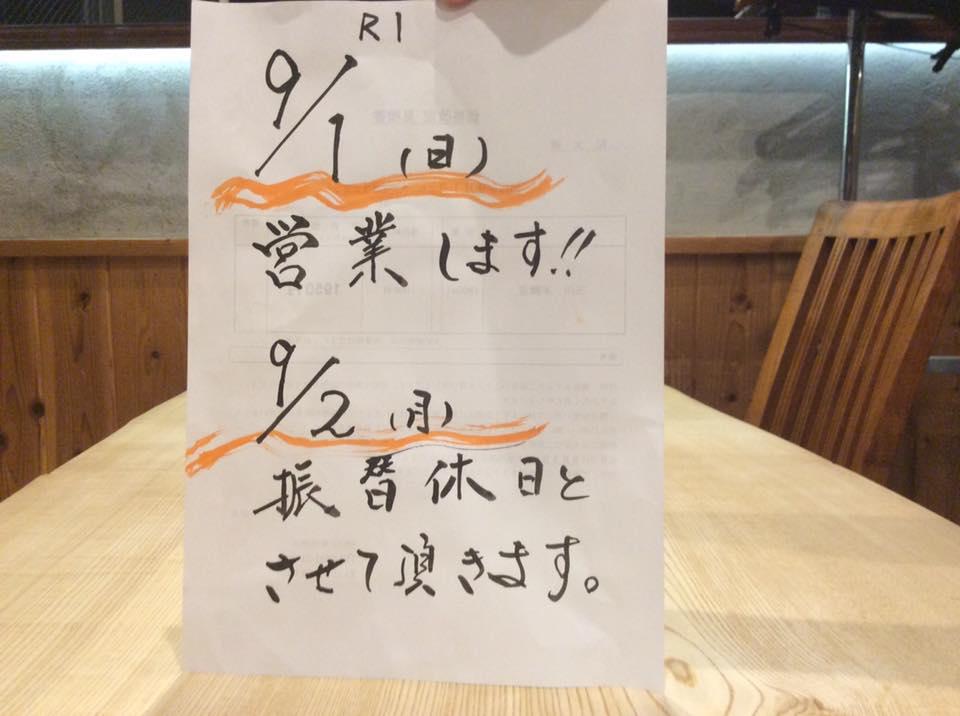 R1
9/1 (日)
営業します!!
9/2 (月)
振替休日と
させて頂きます。